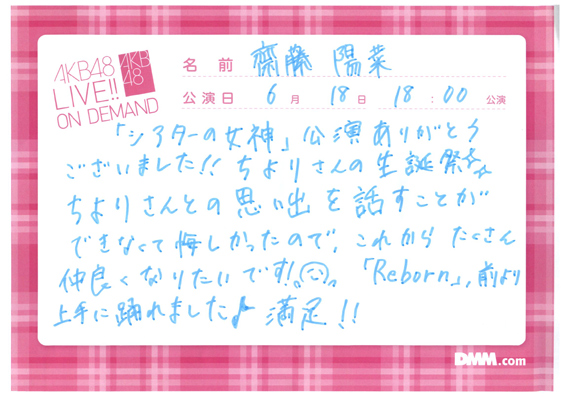 AKB48
LIVE!!
ON DEMAND
AKB
48
名前 齋藤 陽菜
公演日 6月 18日 18:00 公演
「シアターの女神」公演ありがとう
ございました!!ちよりさんの生誕祭☆☆
ちよりさんとの思い出を話すことが
できなくて悔しかったので、これからたくさん
仲良くなりたいです!。「Reborn」、前より
上手に踊れました♪ 満足!!
DMM.com